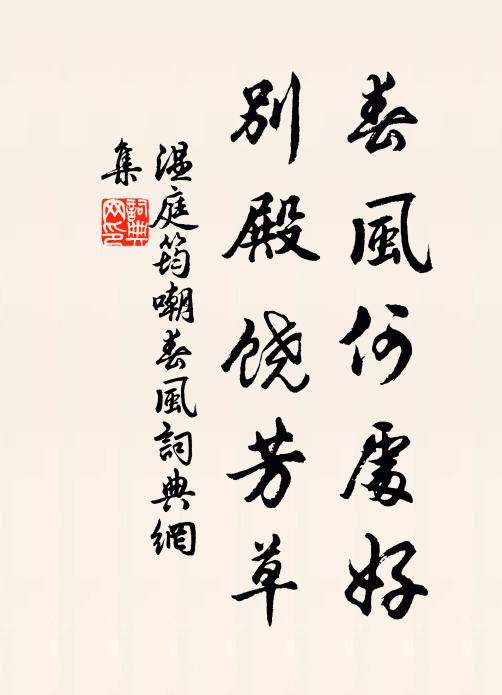 春風何處好
別殿饶芳草
温庭筠嘲春風詞典網
集
詞典
网印